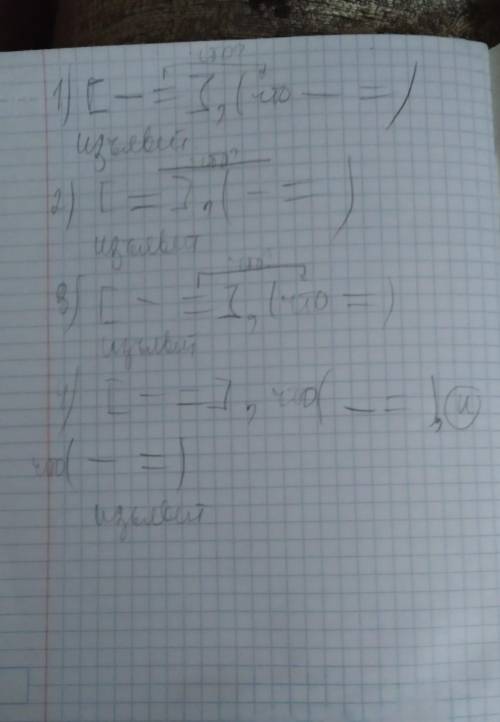 что?
1) [ — = ], (что — = )
изъявит
что?
2) [ = ], ( — = )
изъявит
что?
3) [ — = ], (что = )
изъявит
4) [ — = ], что( — = ), и
что( — = )
изъявит